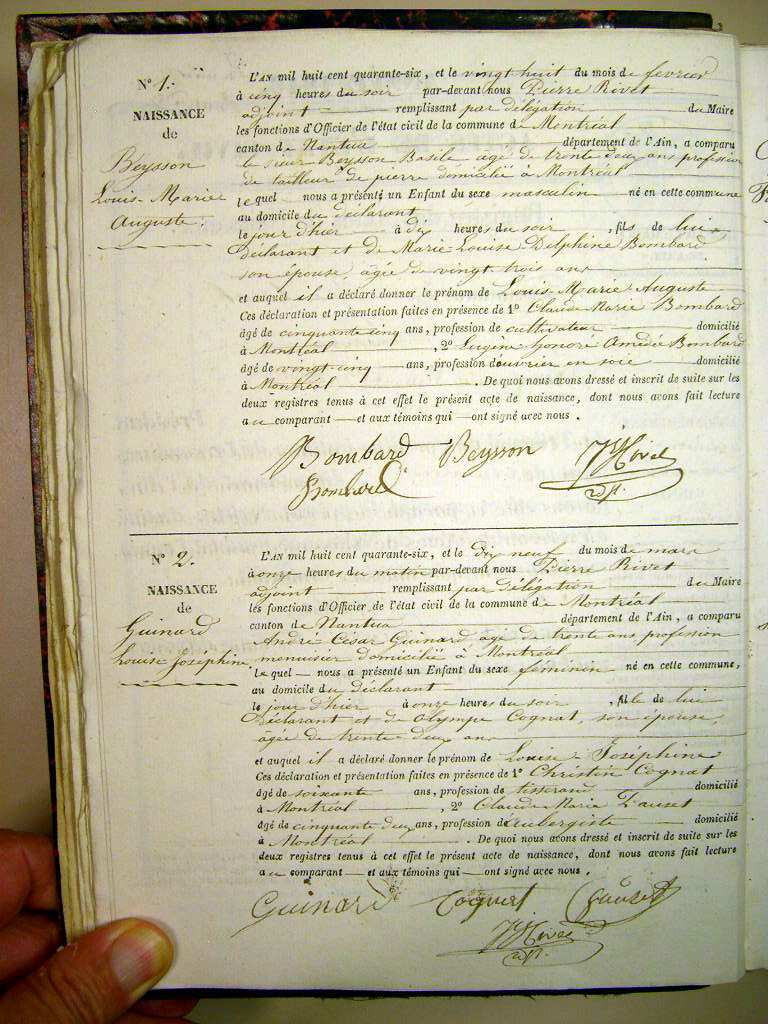 N° 1.
NAISSANCE
de
Beysson
Louis-Marie
Auguste.
L'AN mil huit cent quarante-six, et le vingt huit du mois de fevrier
à cinq heures du soir par-devant nous Pierre Rivet
adjoint remplissant par délégation du Maire
les fonctions d'Officier de l'état civil de la commune de Montréal
canton de Nantua département de l'Ain, a comparu
le sieur Beysson Basile âgé de trente deux ans profession
de tailleur de pierre domicilié à Montréal
lequel — nous a présenté un Enfant du sexe masculin né en cette commune
au domicile du déclarant
le jour d'hier à dix heures du soir, fils de lui
déclarant et de Marie-Louise Delphine Bombard
son épouse, âgée de vingt trois ans
et auquel il a déclaré donner le prénom de Louis-Marie-Auguste
Ces déclaration et présentation faites en présence de 1° Claude-Marie Bombard
âgé de cinquante cinq ans, profession de cultivateur domicilié
à Montréal, 2° Eugène honoré Amédée Bombard
âgé de vingt-cinq ans, profession d'ouvrier en soie domicilié
à Montréal. De quoi nous avons dressé et inscrit de suite sur les
deux registres tenus à cet effet le présent acte de naissance, dont nous avons fait lecture
au comparant — et aux témoins qui — ont signé avec nous.
Bombard Beysson Rivet
Bombard adjt.
N° 2.
NAISSANCE
de
Guinard
Louise Joséphine
L'AN mil huit cent quarante-six, et le dix neuf du mois de mars
à onze heures du matin par-devant nous Pierre Rivet
adjoint remplissant par délégation du Maire
les fonctions d'Officier de l'état civil de la commune de Montréal
canton de Nantua département de l'Ain, a comparu
André César Guinard âgé de trente ans profession
menuisier domicilié à Montréal
lequel — nous a présenté un Enfant du sexe féminin né en cette commune,
au domicile du déclarant
le jour d'hier à onze heures du soir, fille de lui
déclarant et de Olympe Cognat, son épouse,
âgée de trente deux ans
et auquel il a déclaré donner le prénom de Louise-Joséphine
Ces déclaration et présentation faites en présence de 1° Christin Cognat
âgé de soixante ans, profession de tisserand domicilié
à Montréal, 2° Claude-Marie
âgé de cinquante deux ans, profession d'aubergiste domicilié
à Montréal. De quoi nous avons dressé et inscrit de suite sur les
deux registres tenus à cet effet le présent acte de naissance, dont nous avons fait lecture
au comparant — et aux témoins qui — ont signé avec nous.
Guinard
Rivet
adjt.